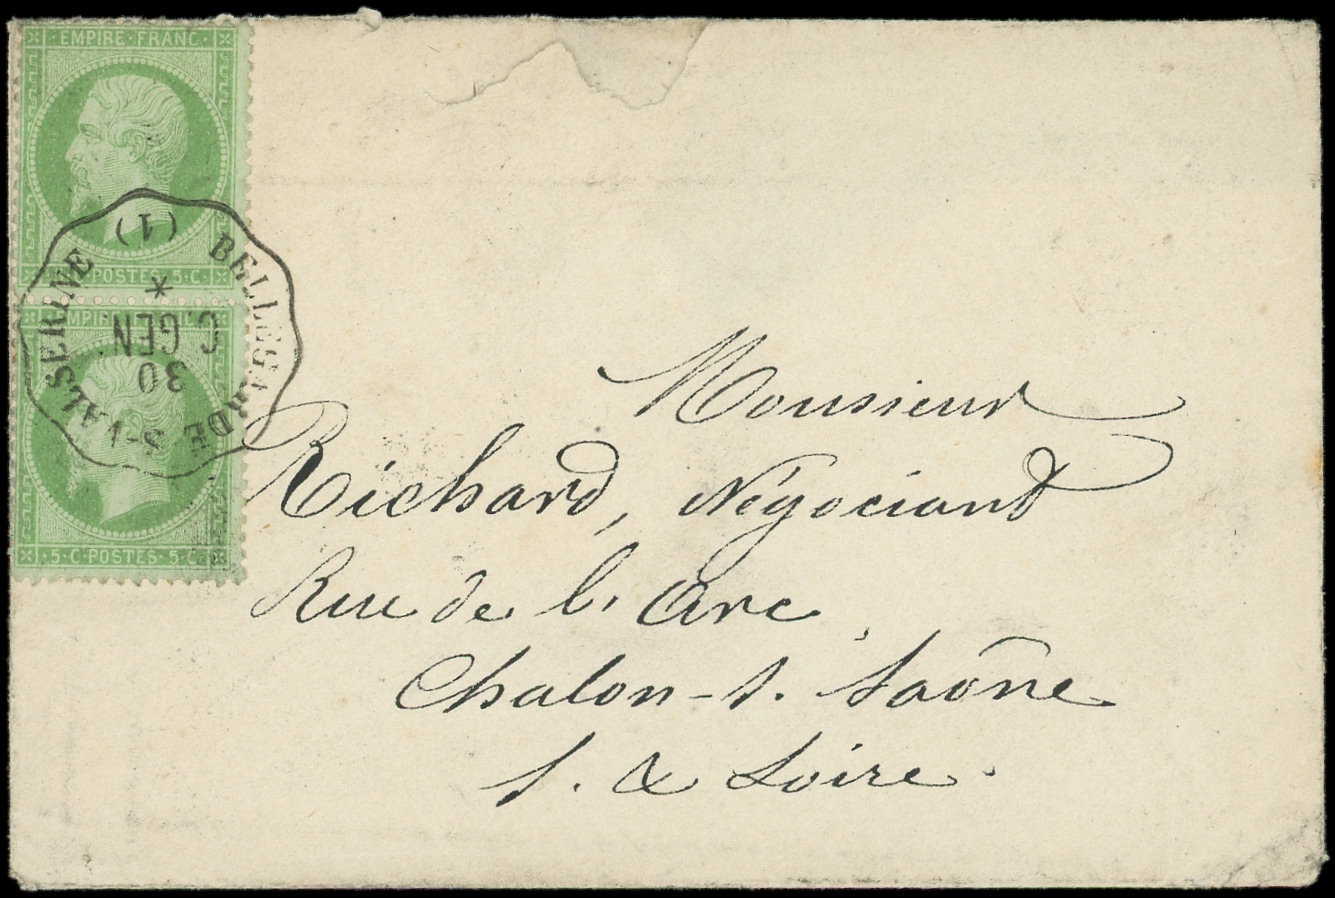 EMPIRE·FRANC·
5·C·POSTES·5·C·
EMPIRE·FRANC·
5·C·POSTES·5·C·
BELLEGARDE S-VALSERINE (1)
*
C.GEN
30
Monsieur
Richard, Négociant
Rue de l'Arc
Chalon-s. Saône
S. & Loire.